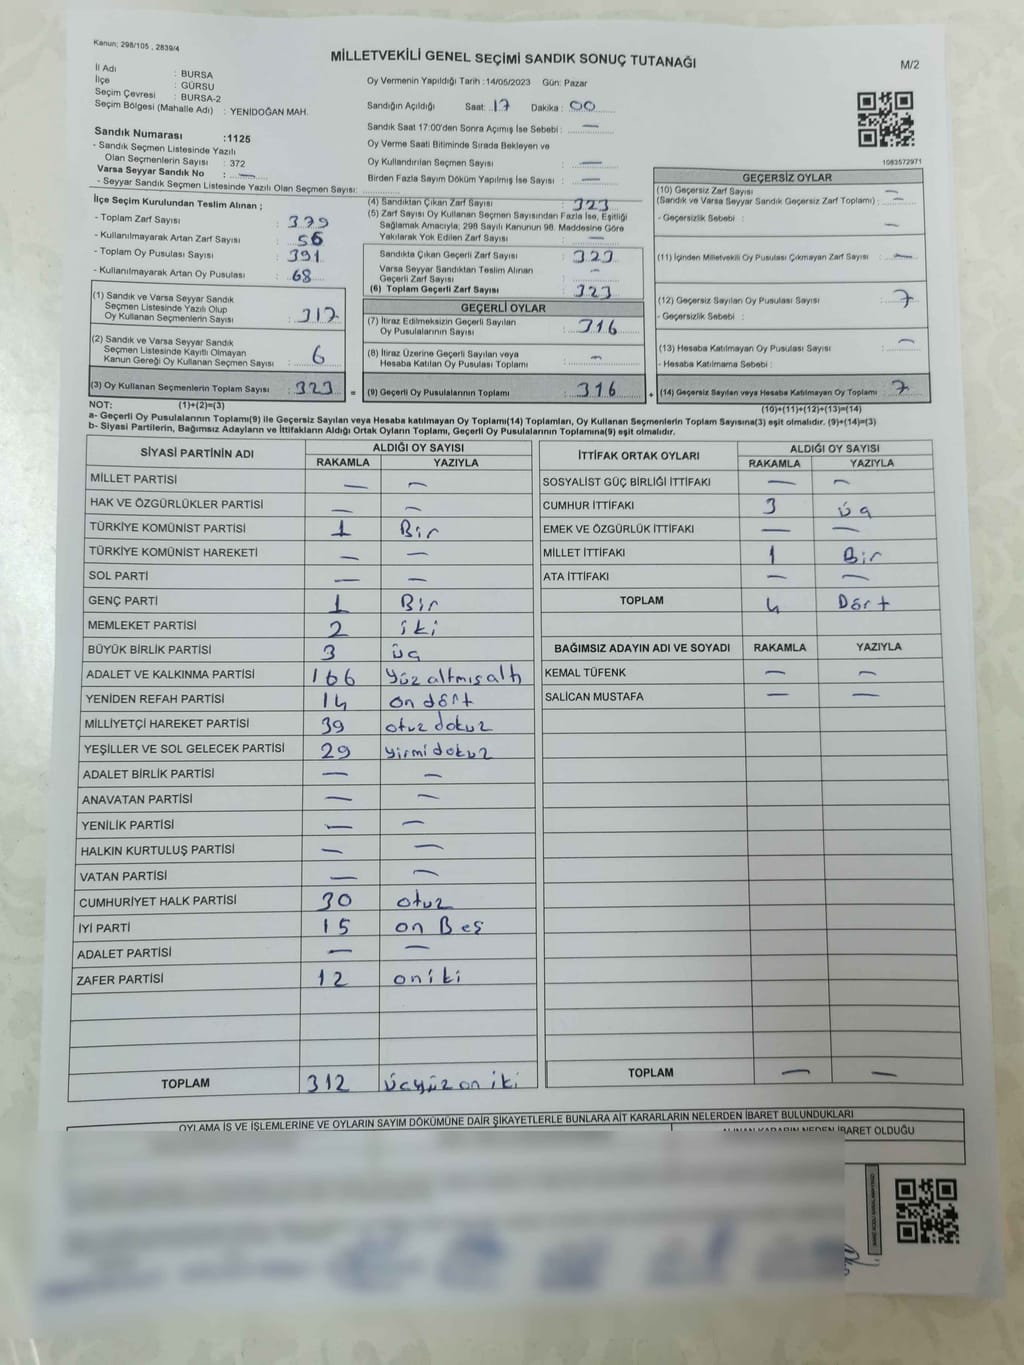 Kanun; 298/105 , 2839/4
MİLLETVEKİLİ GENEL SEÇİMİ SANDIK SONUÇ TUTANAĞI
M/2
İl Adı : BURSA
İlçe : GÜRSU
Seçim Çevresi : BURSA-2
Seçim Bölgesi (Mahalle Adı) : YENİDOĞAN MAH.
Sandık Numarası :1125
- Sandık Seçmen Listesinde Yazılı
Olan Seçmenlerin Sayısı : 372
Varsa Seyyar Sandık No : —
- Seyyar Sandık Seçmen Listesinde Yazılı Olan Seçmen Sayısı:
Oy Vermenin Yapıldığı Tarih :14/05/2023 Gün: Pazar
Sandığın Açıldığı Saat: 17 Dakika : 00
Sandık Saat 17:00'den Sonra Açımış İse Sebebi : —
Oy Verme Saati Bitiminde Sırada Bekleyen ve
Oy Kullandırılan Seçmen Sayısı —
Birden Fazla Sayım Döküm Yapılmış İse Sayısı : —
1083572971
İlçe Seçim Kurulundan Teslim Alınan ;
- Toplam Zarf Sayısı : 379
- Kullanılmayarak Artan Zarf Sayısı : 56
- Toplam Oy Pusulası Sayısı : 391
- Kullanılmayarak Artan Oy Pusulası : 68
(1) Sandık ve Varsa Seyyar Sandık
Seçmen Listesinde Yazılı Olup
Oy Kullanan Seçmenlerin Sayısı : 317
(2) Sandık ve Varsa Seyyar Sandık
Seçmen Listesinde Kayıtlı Olmayan
Kanun Gereği Oy Kullanan Seçmen Sayısı : 6
(3) Oy Kullanan Seçmenlerin Toplam Sayısı : 323 =
(4) Sandıktan Çıkan Zarf Sayısı : 323
(5) Zarf Sayısı Oy Kullanan Seçmen Sayısından Fazla İse, Eşitliği
Sağlamak Amacıyla; 298 Sayılı Kanunun 98. Maddesine Göre
Yakılarak Yok Edilen Zarf Sayısı : —
Sandıkta Çıkan Geçerli Zarf Sayısı : 323
Varsa Seyyar Sandıktan Teslim Alınan
Geçerli Zarf Sayısı : —
(6) Toplam Geçerli Zarf Sayısı : 323
GEÇERLİ OYLAR
(7) İtiraz Edilmeksizin Geçerli Sayılan
Oy Pusulalarının Sayısı : 316
(8) İtiraz Üzerine Geçerli Sayılan veya
Hesaba Katılan Oy Pusulaları Toplamı : —
(9) Geçerli Oy Pusulalarının Toplamı : 316 +
GEÇERSİZ OYLAR
(10) Geçersiz Zarf Sayısı —
(Sandık ve Varsa Seyyar Sandık Geçersiz Zarf Toplamı) : —
- Geçersizlik Sebebi : —
(11) İçinden Milletvekili Oy Pusulası Çıkmayan Zarf Sayısı : —
(12) Geçersiz Sayılan Oy Pusulası Sayısı : 7
- Geçersizlik Sebebi :
(13) Hesaba Katılmayan Oy Pusulası Sayısı : —
- Hesaba Katılmama Sebebi :
(14) Geçersiz Sayılan veya Hesaba Katılmayan Oy Toplamı : 7
NOT: (1)+(2)=(3) (10)+(11)+(12)+(13)=(14)
a- Geçerli Oy Pusulalarının Toplamı(9) ile Geçersiz Sayılan veya Hesaba katılmayan Oy Toplamı(14) Toplamları, Oy Kullanan Seçmenlerin Toplam Sayısına(3) eşit olmalıdır. (9)+(14)=(3)
b- Siyasi Partilerin, Bağımsız Adayların ve İttifakların Aldığı Ortak Oyların Toplamı, Geçerli Oy Pusulalarının Toplamına(9) eşit olmalıdır.
SİYASİ PARTİNİN ADI ALDIĞI OY SAYISI
RAKAMLA YAZIYLA
MİLLET PARTİSİ — —
HAK VE ÖZGÜRLÜKLER PARTİSİ — —
TÜRKİYE KOMÜNİST PARTİSİ 1 Bir
TÜRKİYE KOMÜNİST HAREKETİ — —
SOL PARTİ — —
GENÇ PARTİ 1 Bir
MEMLEKET PARTİSİ 2 iki
BÜYÜK BİRLİK PARTİSİ 3 üç
ADALET VE KALKINMA PARTİSİ 166 yüz altmış altı
YENİDEN REFAH PARTİSİ 14 on dört
MİLLİYETÇİ HAREKET PARTİSİ 39 otuz dokuz
YEŞİLLER VE SOL GELECEK PARTİSİ 29 yirmi dokuz
ADALET BİRLİK PARTİSİ — —
ANAVATAN PARTİSİ — —
YENİLİK PARTİSİ — —
HALKIN KURTULUŞ PARTİSİ — —
VATAN PARTİSİ — —
CUMHURİYET HALK PARTİSİ 30 otuz
İYİ PARTİ 15 on Beş
ADALET PARTİSİ — —
ZAFER PARTİSİ 12 on iki
TOPLAM 312 üçyüz on iki
İTTİFAK ORTAK OYLARI ALDIĞI OY SAYISI
RAKAMLA YAZIYLA
SOSYALİST GÜÇ BİRLİĞİ İTTİFAKI — —
CUMHUR İTTİFAKI 3 üç
EMEK VE ÖZGÜRLÜK İTTİFAKI — —
MİLLET İTTİFAKI 1 Bir
ATA İTTİFAKI — —
TOPLAM 4 Dört
BAĞIMSIZ ADAYIN ADI VE SOYADI RAKAMLA YAZIYLA
KEMAL TÜFENK — —
SALİCAN MUSTAFA — —
TOPLAM — —
OYLAMA İŞ VE İŞLEMLERİNE VE OYLARIN SAYIM DÖKÜMÜNE DAİR ŞİKAYETLERLE BUNLARA AİT KARARLARIN NELERDEN İBARET BULUNDUKLARI
ALINAN KARARIN NEDEN İBARET OLDUĞU